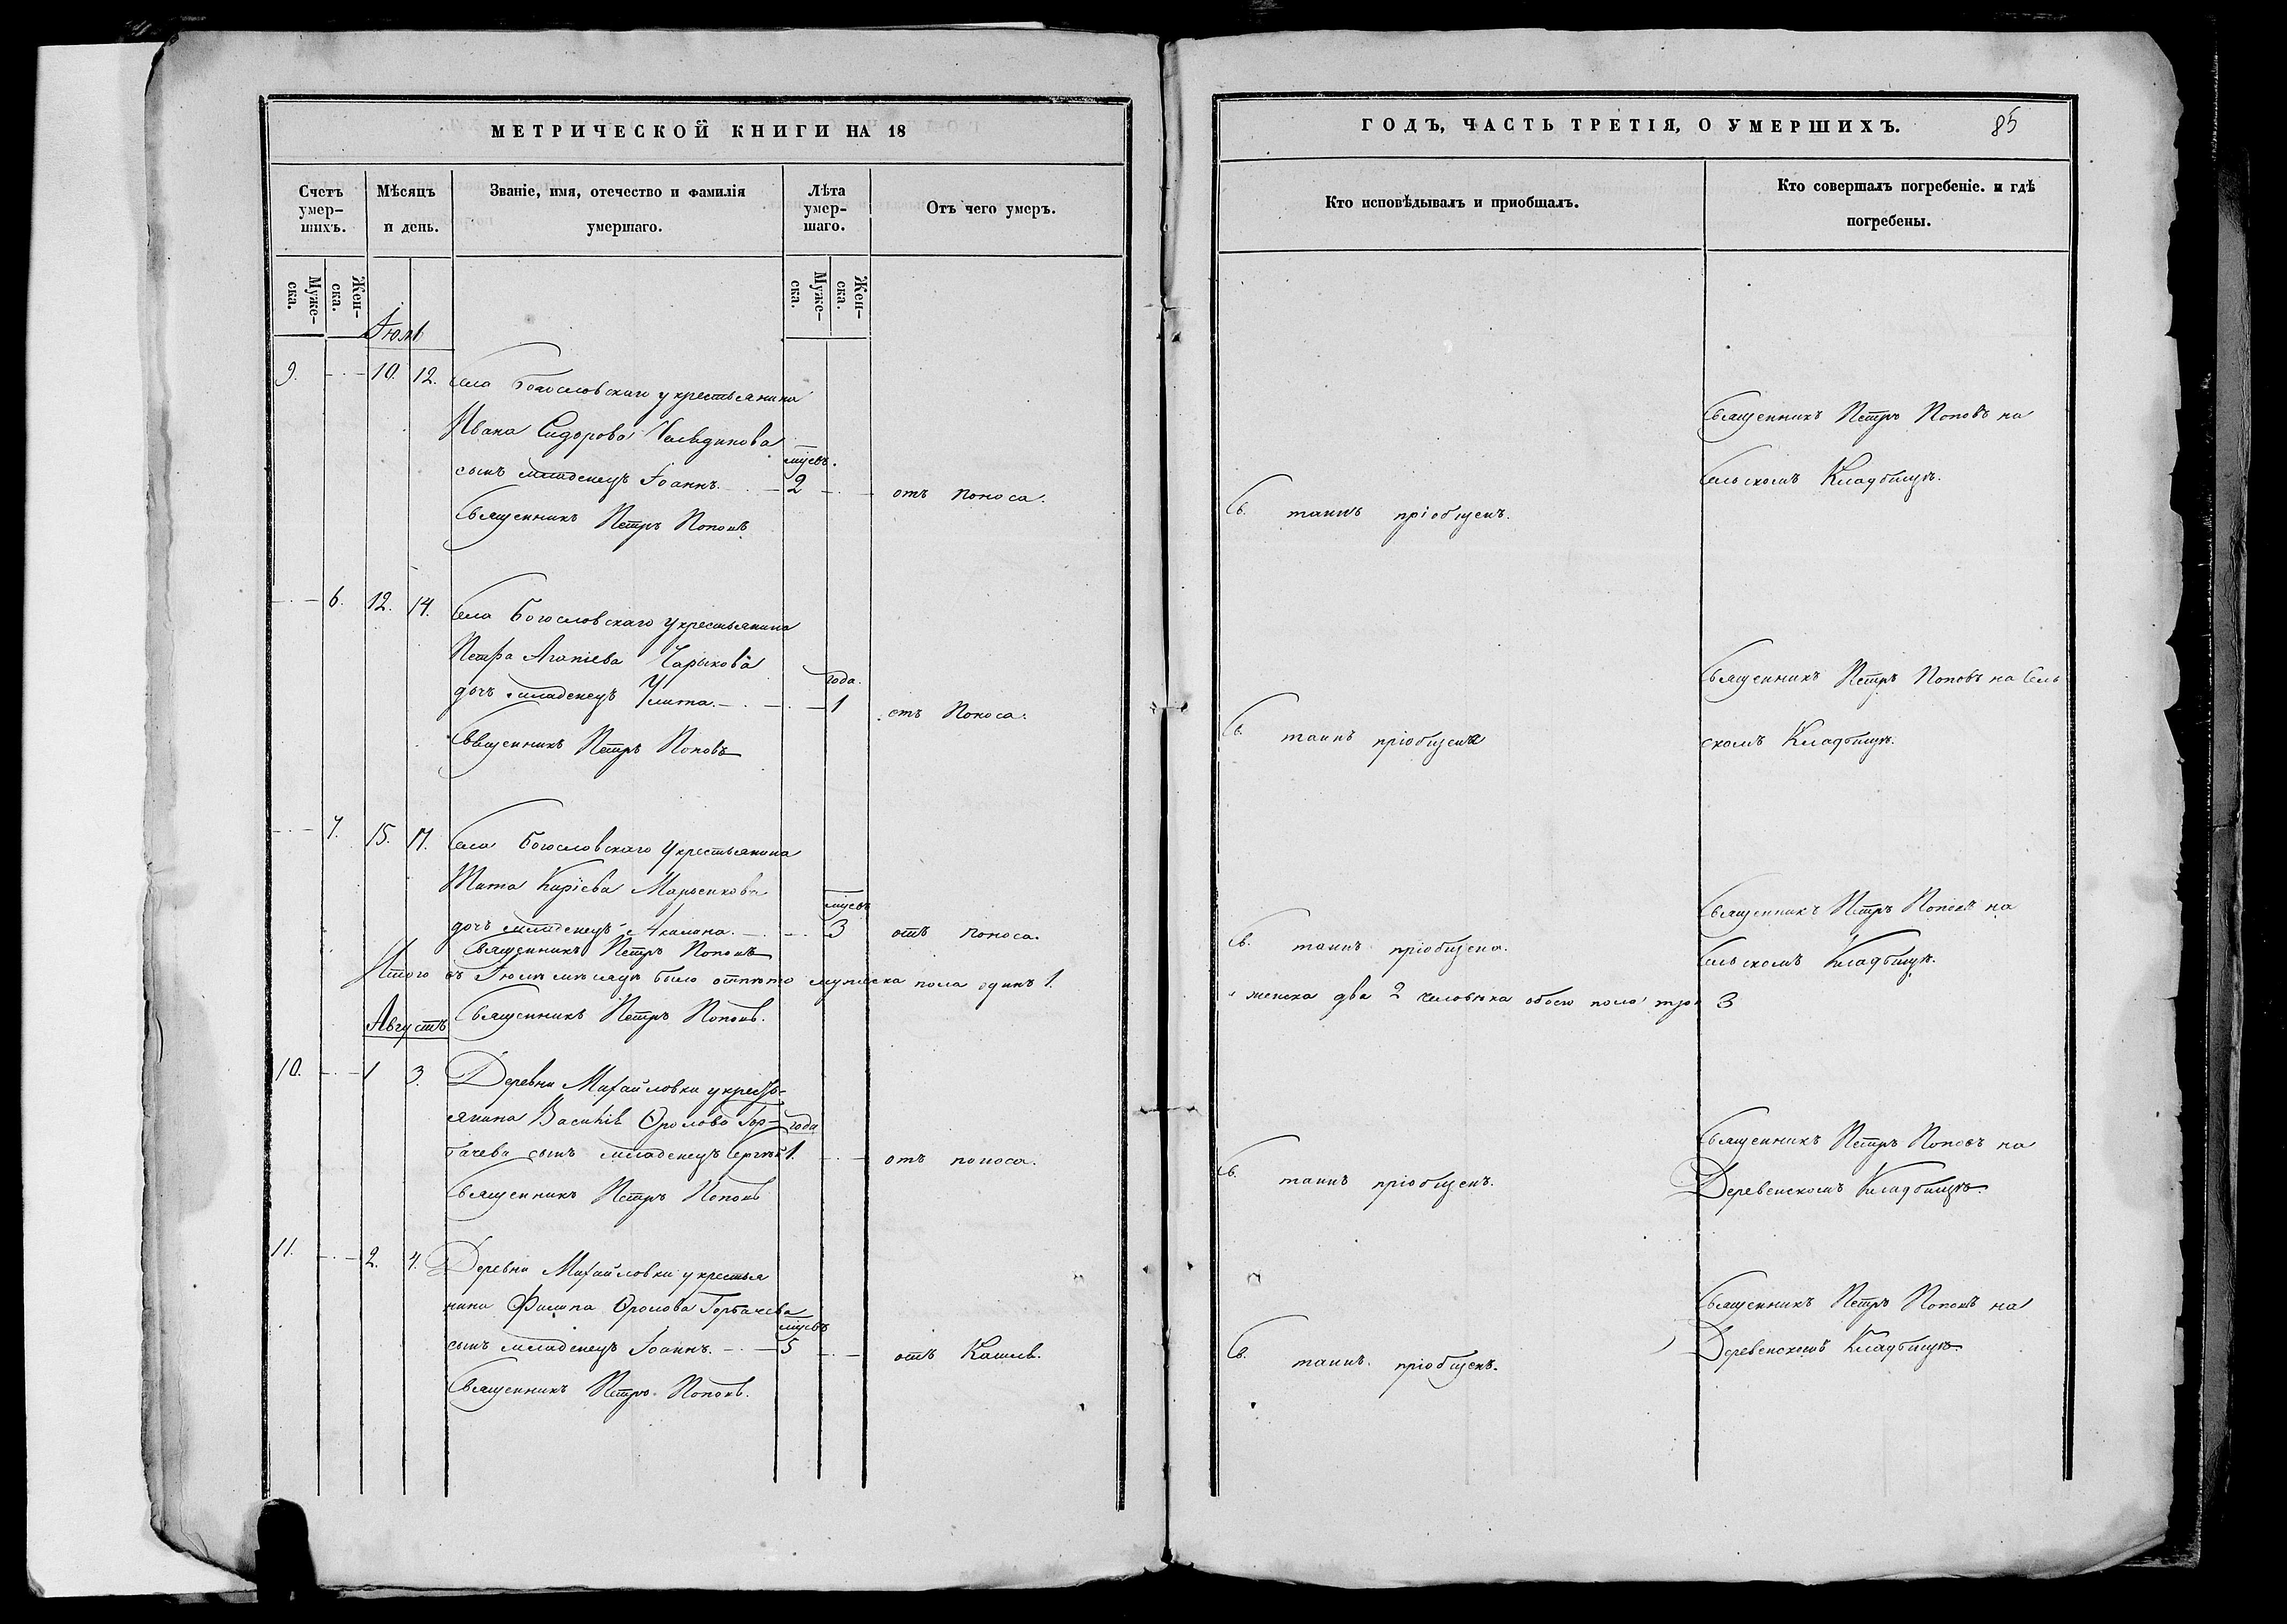 МЕТРИЧЕСКОЙ КНИГИ НА 18
Счетъ умер-
шихъ.
Мѣсяцъ
и день.
Званіе, имя, отечество и фамилія
умершаго.
Лѣта
умер-
шаго.
Отъ чего умеръ.
Муже-
ска.
Жен-
ска.
Муже-
ска.
Жен-
ска.
Іюль
9. 10. 12. Села Богословскаго у крестьянина
Ивана Сидорова
мцсвъ.
сынъ младенецъ Іоаннъ. 2 отъ поноса.
Священникъ Петръ Поповъ
6. 12. 14. Села Богословскаго у крестьянина
Петра Агапіева Чарыкова
года.
дочь младенецъ Улита. 1 отъ Поноса.
Священникъ Петръ Поповъ
7. 15. 17. Села Богословскаго у крестьянина
Тита Карпіева
мцсвъ
дочь младенецъ Акилина. 3 отъ поноса.
Священникъ Петръ Поповъ
Итого въ Іюлѣ мѣсяцѣ было отпѣто мужеска пола одинъ 1.
Августъ Священникъ Петръ Поповъ.
10. 1 3. Деревни Михайловки у кресть-
янина Василія Фролова Гор- года
бачева сынъ младенецъ Сергѣй 1. отъ поноса.
Священникъ Петръ Поповъ
11. 2. 4. Деревни Михайловки у крестья
нина Филипа Фролова Горбачева
мцсвъ
сынъ младенецъ Іоаннъ. 5 отъ Кашля.
Священникъ Петръ Поповъ.
ГОДЪ, ЧАСТЬ ТРЕТІЯ, О УМЕРШИХЪ. 85
Кто исповѣдывалъ и приобщалъ.
Кто совершалъ погребеніе. и гдѣ
погребены.
Священникъ Петръ Поповъ на
Сельскомъ Кладбищѣ.
Св. таинъ пріобщенъ.
Священникъ Петръ Поповъ на Сель
Св. таинъ пріобщена
скомъ Кладбищѣ.
Священникъ Петръ Поповъ на
Св. таинъ пріобщена.
Сельскомъ Кладбищѣ.
женска два 2 человѣка обоего пола три 3
Священникъ Петръ Поповъ на
Св. таинъ пріобщенъ.
Деревенскомъ Кладбищѣ.
Священникъ Петръ Поповъ на
Св. таинъ пріобщенъ.
Деревенскомъ Кладбищѣ